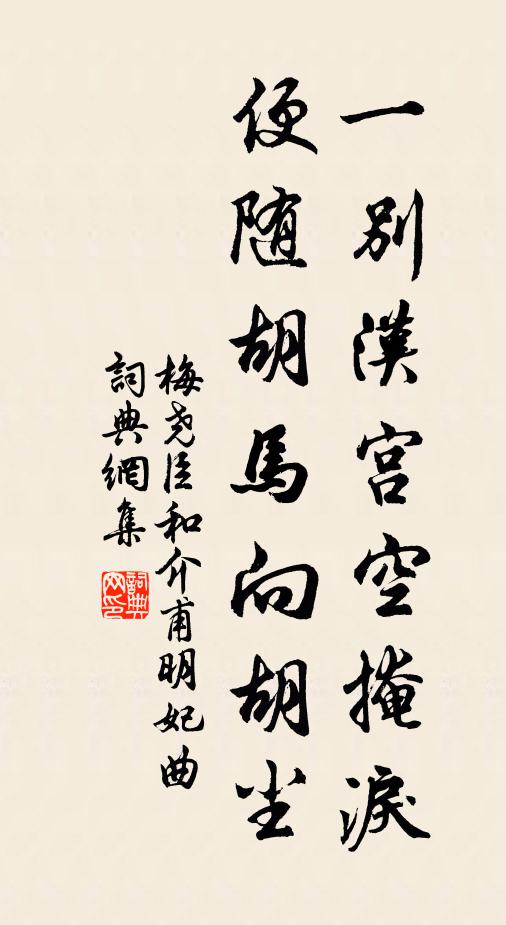 一别漢宫空掩淚
便随胡馬向胡尘
梅尧臣和介甫明妃曲
詞典網集
詞典网印